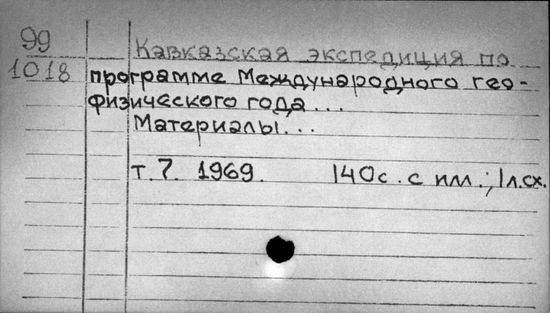 99
1018
Кавказская экспедиция по
программе Международного гео-
физического года...
Материалы...
т. 7. 1969. 140с. с илл.; 1л.сх.